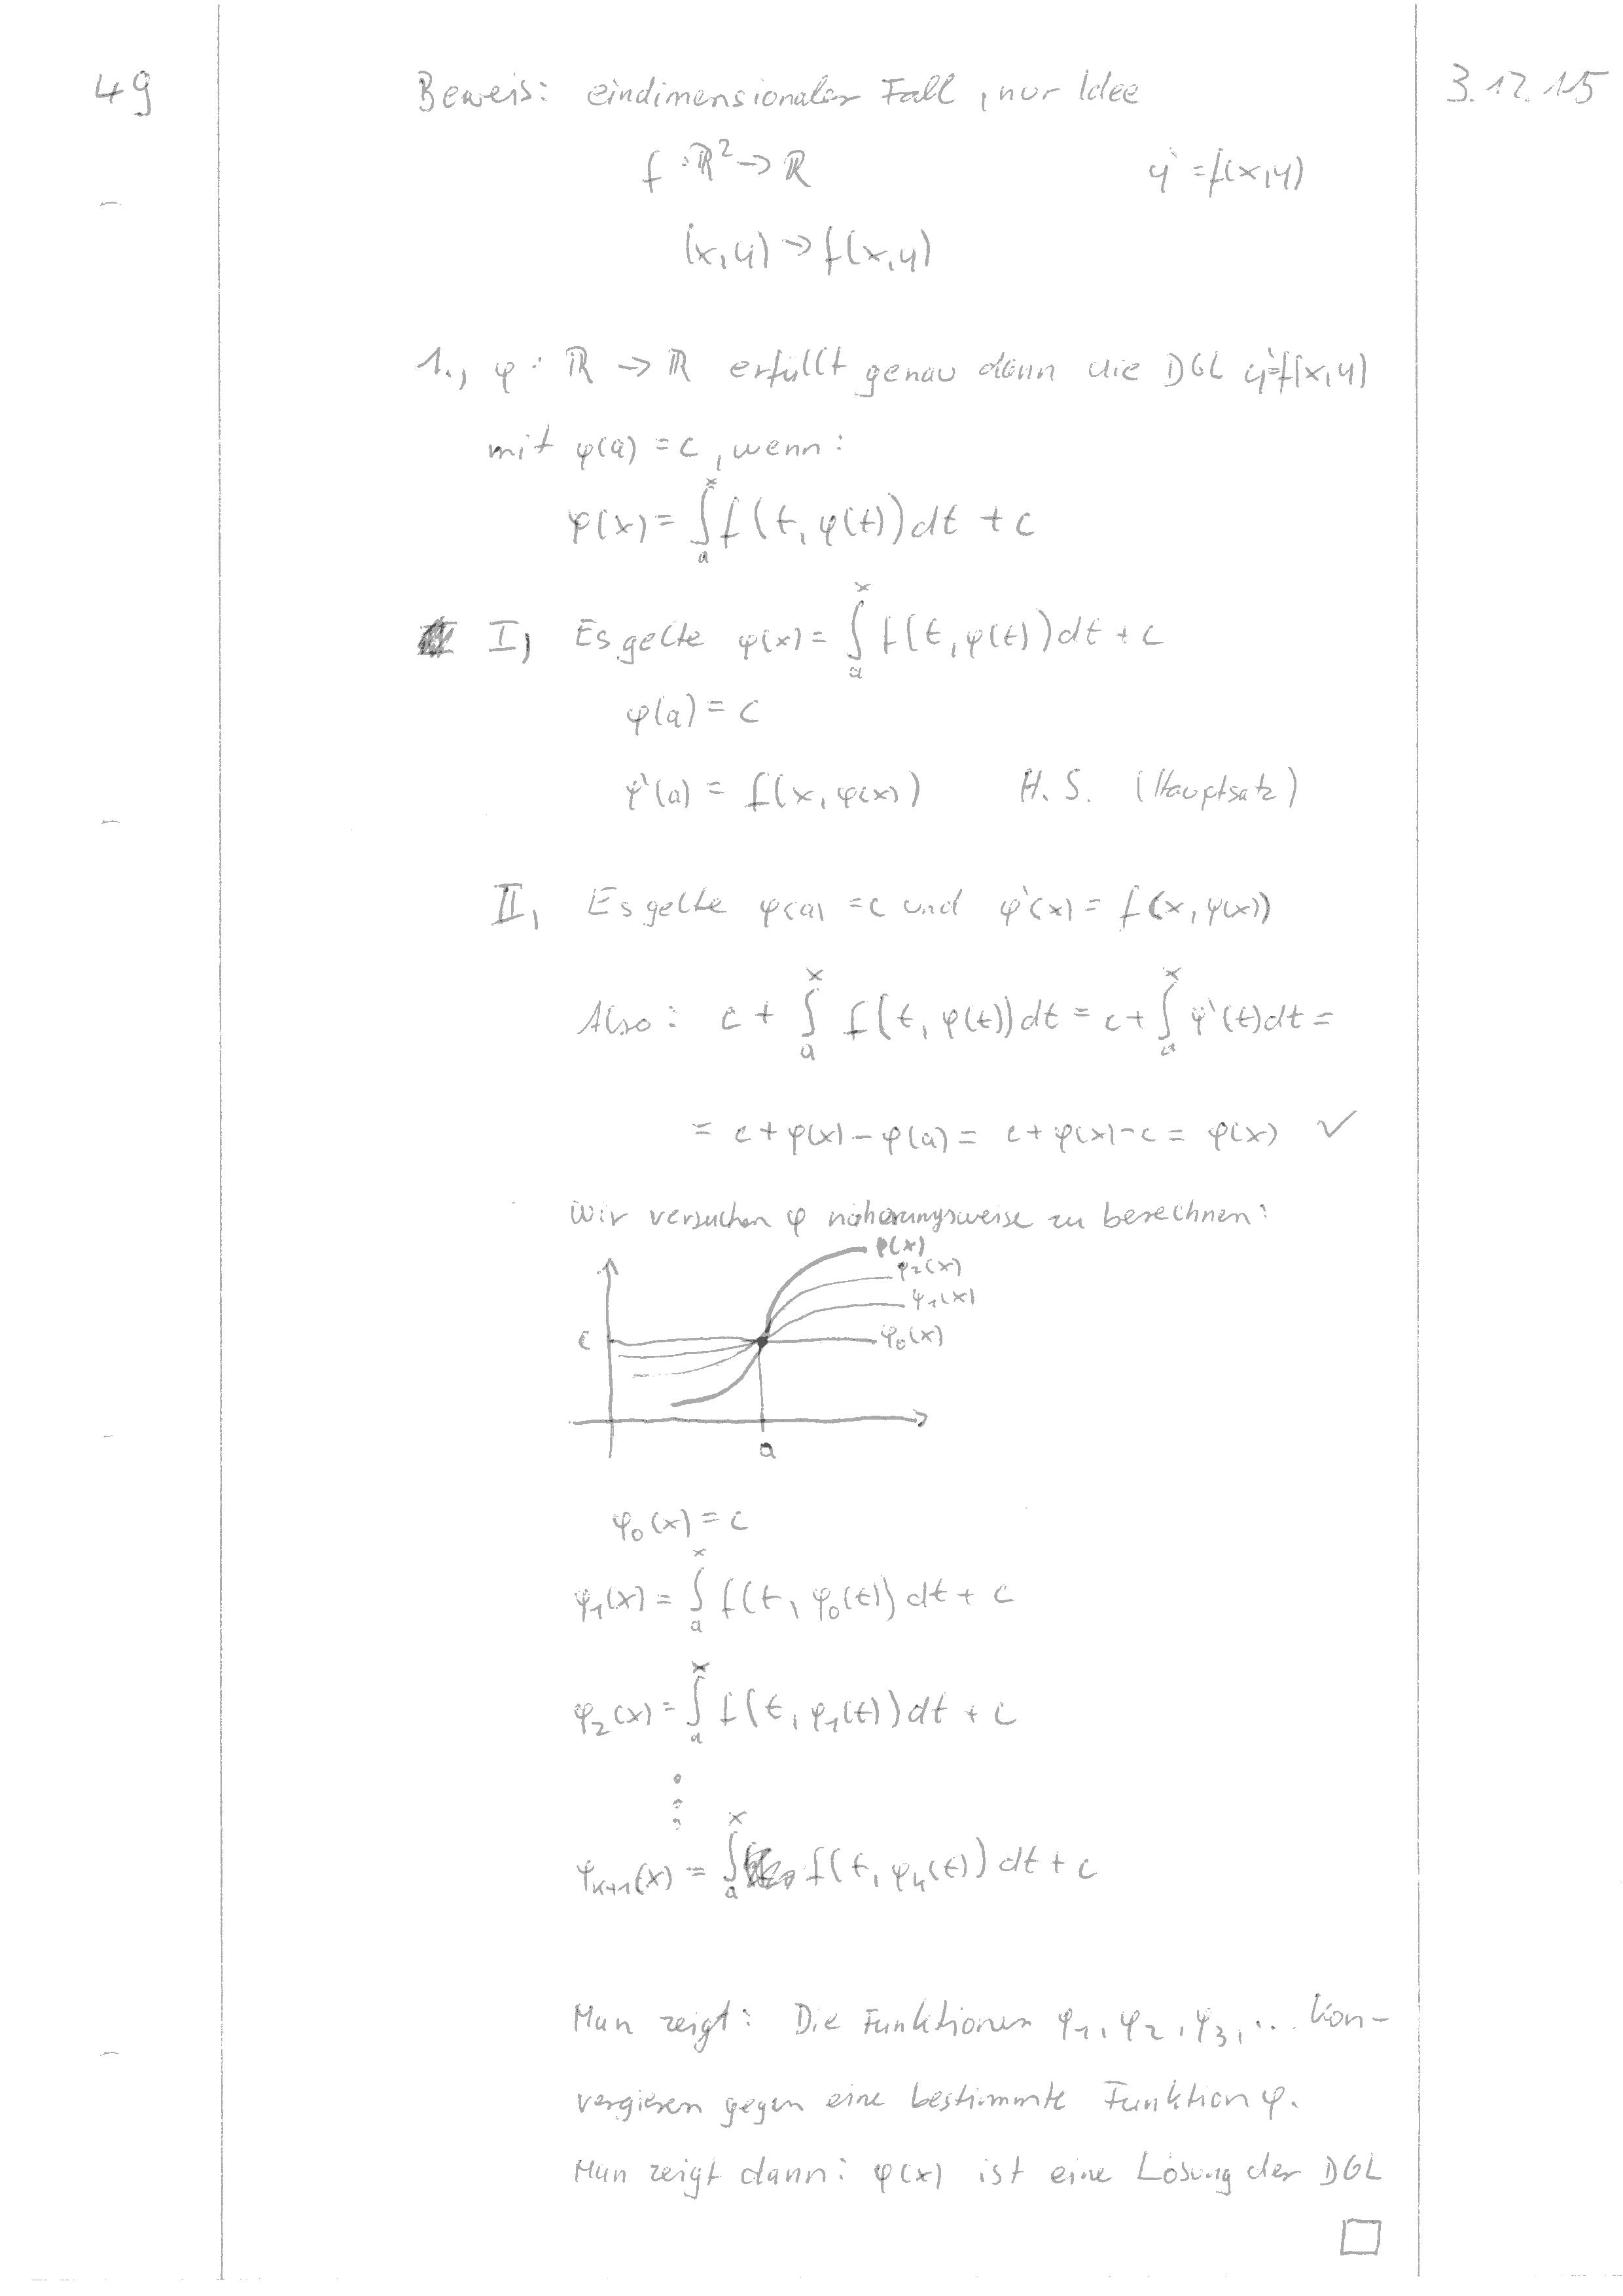 49
Beweis: eindimensionaler Fall, nur Idee
3.12.15
f : ℝ² → ℝ    y' = f(x,y)
(x,y) → f(x,y)
1., φ : ℝ → ℝ erfüllt genau dann die DGL y'=f(x,y)
mit φ(a) = c, wenn:
φ(x) = ∫ₐˣ f(t, φ(t)) dt + c
I, Es gelte φ(x) = ∫ₐˣ f(t, φ(t)) dt + c
φ(a) = c
φ'(a) = f(x, φ(x))    H.S. (Hauptsatz)
II, Es gelte φ(a) = c und φ'(x) = f(x, φ(x))
Also: c + ∫ₐˣ f(t, φ(t)) dt = c + ∫ₐˣ φ'(t) dt =
= c + φ(x) - φ(a) = c + φ(x) - c = φ(x) ✓
Wir versuchen φ näherungsweise zu berechnen:
φ(x)
φ₂(x)
φ₁(x)
c
φ₀(x)
a
φ₀(x) = c
φ₁(x) = ∫ₐˣ f(t, φ₀(t)) dt + c
φ₂(x) = ∫ₐˣ f(t, φ₁(t)) dt + c
⋮
φₖ₊₁(x) = ∫ₐˣ f(t, φₖ(t)) dt + c
Man zeigt: Die Funktionen φ₁, φ₂, φ₃, ... kon-
vergieren gegen eine bestimmte Funktion φ.
Man zeigt dann: φ(x) ist eine Lösung der DGL
□